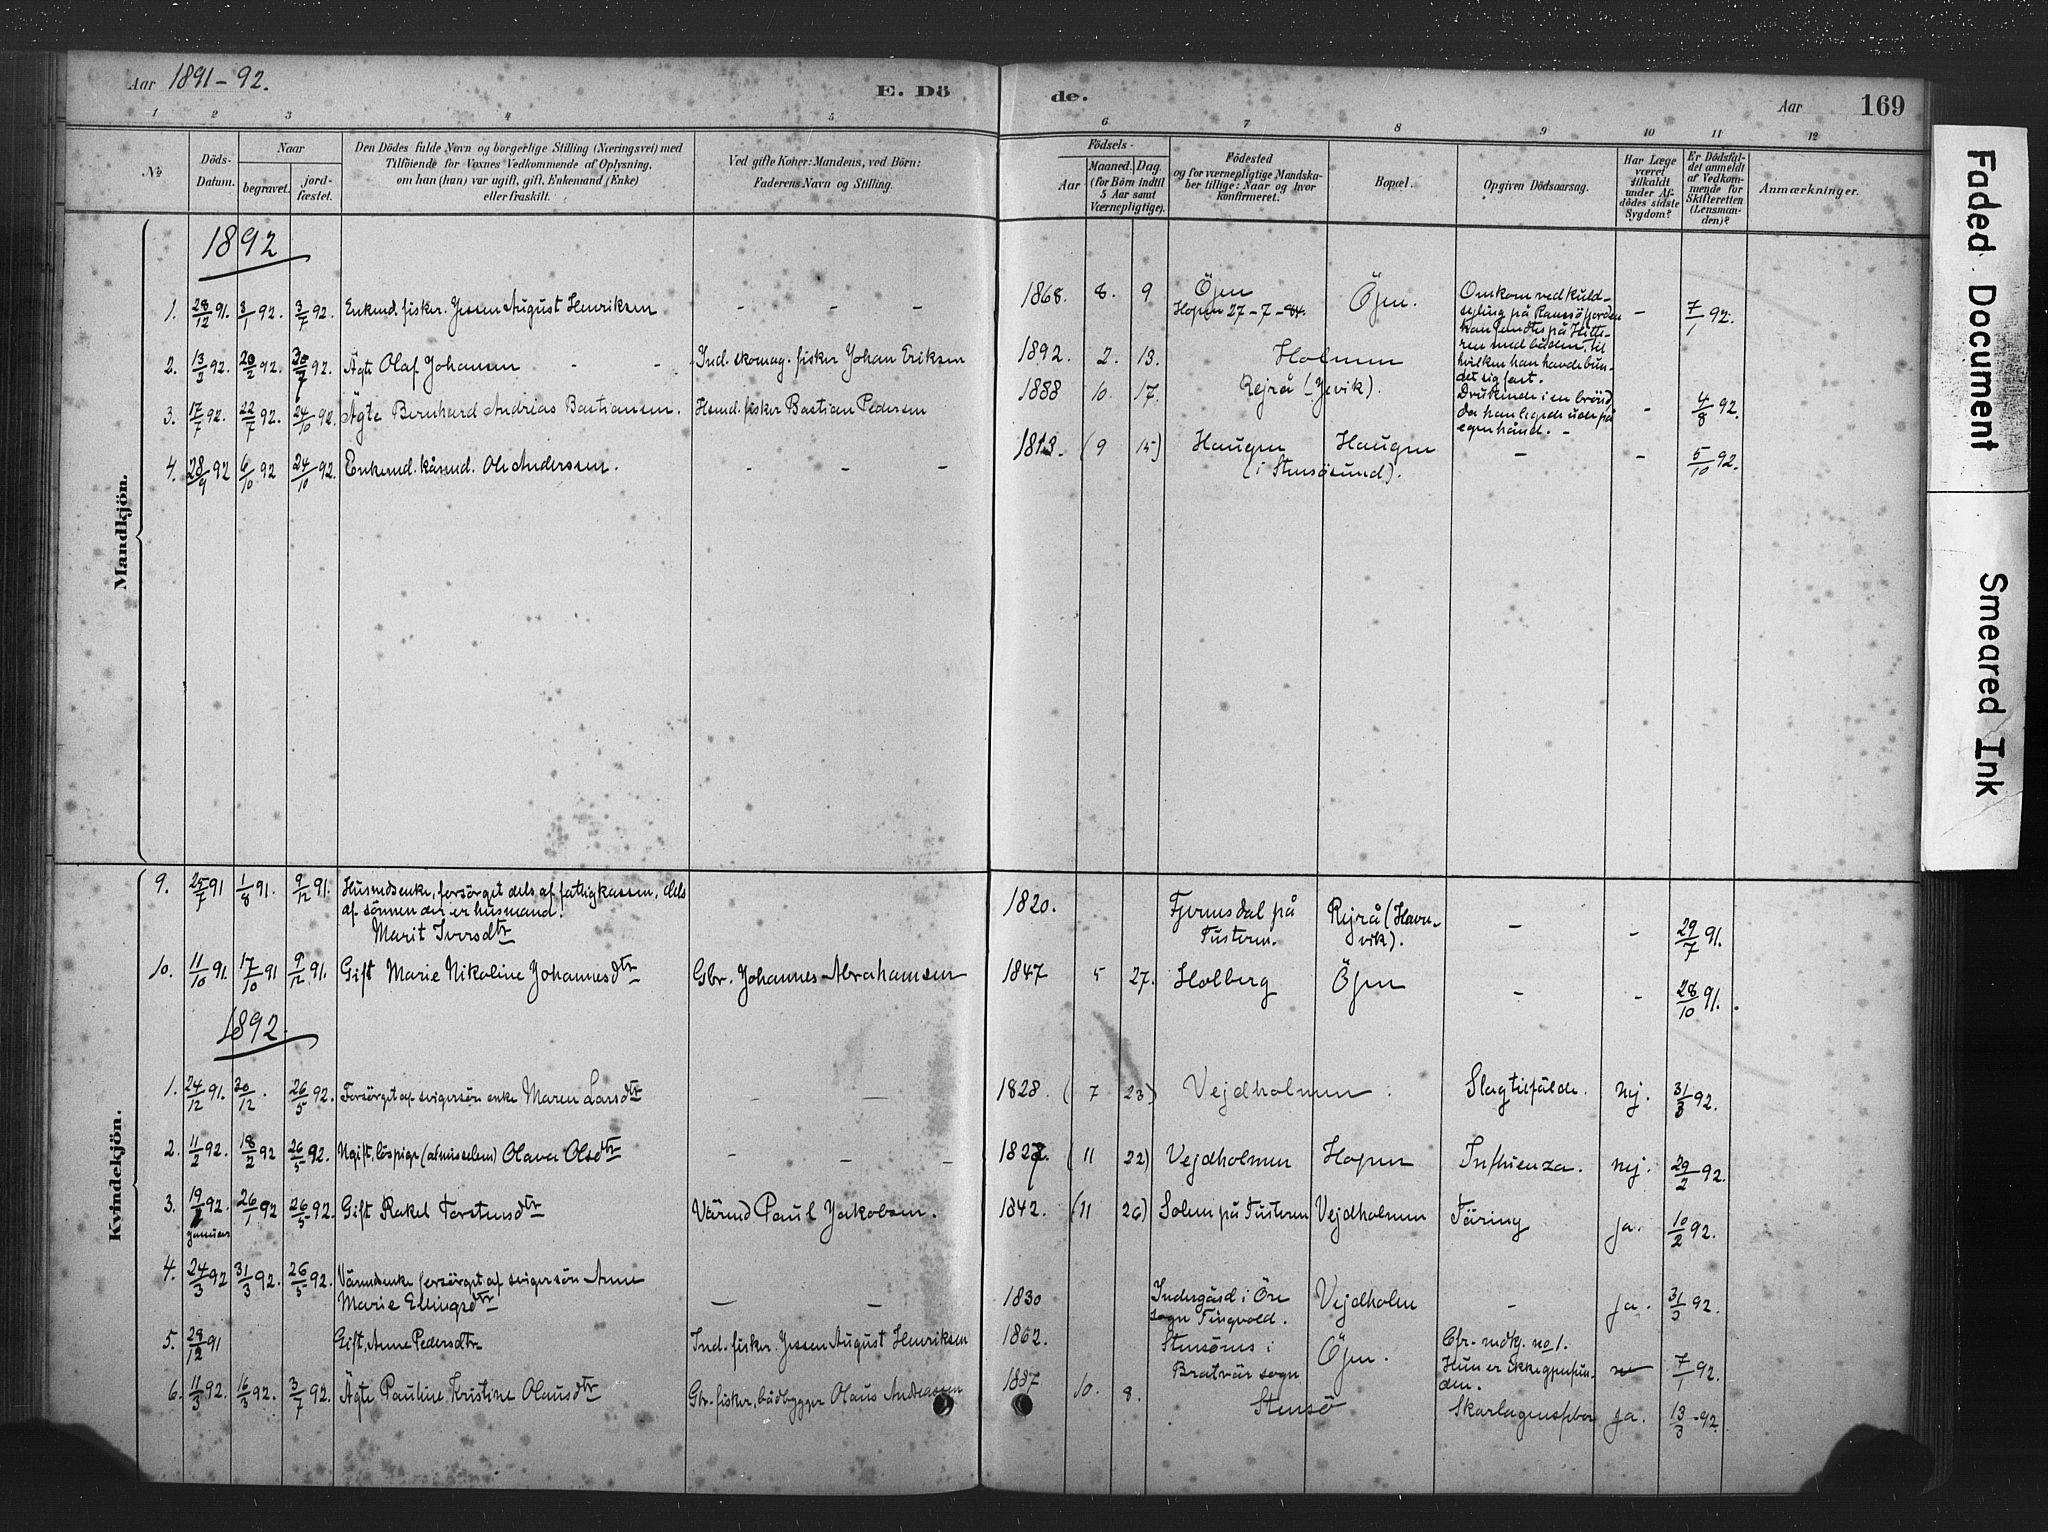 Aar 1891-92.
E. Dö
de.
Aar
169
1 2 3 4 5 6 7 8 9 10 11 12
No
Döds-
Datum.
Naar
begravet.
jord-
fæstet.
Den Dödes fulde Navn og borgerlige Stilling (Næringsvei) med
Tilföiende for Voxnes Vedkommende af Oplysning,
om han (hun) var ugift, gift, Enkemand (Enke)
eller fraskilt.
Ved gifte Koner: Mandens, ved Börn:
Faderens Navn og Stilling.
Födsels-
Aar
Maaned.
Dag.
(for Börn indtil
5 Aar samt
Værnepligtige).
Födested
og for værnepligtige Mandska-
ber tillige: Naar og hvor
konfirmeret.
Bopæl.
Opgiven Dödsaarsag.
Har Læge
været
tilkaldt
under Af-
dödes sidste
Sygdom?
Er Dödsfal-
det anmeldt
af Vedkom-
mende for
Skifteretten
(Lensman-
den)?
Anmærkninger.
Mandkjön.
1892
1. 28/12 91. 3/1 92. 3/7 92. Enkemd. fisker. Jessen August Henriksen - - - 1868. 8. 9 Öjen
Hopen 27-7-84. Öjen. Omkom ved kuld-
sejling på Ramsöfjorden
han fandtes på Hitte-
ren med båden, til
hvilken han havde bun-
det sig fast. - 7/1 92.
2. 13/3 92. 92. 92. Ägte Olaf Johansen - - Ind. skomag. fisker Johan Eriksen 1892. 2. 13. Holmen
3. 17/7 92. 22/7 92. 24/10 92. Ägte Bernhard Andreas Bastiansen. Hsmd. fisker Bastian Pedersen 1888 10. 17. Rejrå (Jevik). Druknede i en brönd
da han legede ude på
egen hånd. - - 4/8 92.
4. 28/9 92 6/10 92 24/10 92. Enkemd. kårmd. Ole Anderssen. - - - 1813. (9 15) Haugen Haugen
(i Stensösund). - - 5/10 92.
Kvindekjön.
9. 25/7 91 1/8 91. 9/12 91. Husmdsenke, forsörget dels af fattigkassen, dels
af sönnen der er husmand.
Marit Iversdtr 1820. Fjernsdal på
Tustern. Rejrå (Havn-
vik). - - 29/7 91.
10. 11/10 91. 17/10 91 9/12 91. Gift Marie Nikoline Johannesdtr Gbr. Johannes Abrahamsen 1847 5 27. Holberg Öjen - - 28/10 91.
1892.
1. 24/12 91. 30/12. 26/5 92. Forsörget af svigersön enke Maren Larsdtr - - 1828. (7 23) Vejdholmen. Slagtilfälde. nej. 31/3 92.
2. 11/2 92. 18/2 92 26/5 92. Ugift, löspige (almisselem) Olava Olsdtr - - - 1827. (11 22) Vejdholmen Hopen Influenza. nej. 29/2 92.
3. 19/1 92. 26/1 92 26/5 92. Gift Rakel Torstensdtr Vårmd Paul Jakobsen. 1842. (11 26) Solem på Tustern Vejdholmen Täring ja. 10/2 92.
januar
4. 24/3 92 31/3 92. 26/5 92. Vårmdsenke forsörget af svigersön Anne
Marie Ellingsdtr - - 1830 Indergård i Öre
sogn Tingvold. Vejdholm - ja. 31/3 92.
5. 28/12 91 Gift, Anne Pedersdtr Ind. fisker. Jessen August Henriksen 1862. Stensönes i
Bratvär sogn Öjen. Cfr. mdkj. no 1.
Hun er ikke gjenfun-
den. 7/1 92.
6. 11/3 92. 16/3 92. 3/7 92. Ägte Pauline Kristine Olausdtr Gbr. fisker, bådbygger Olaus Andreassen 1887 10. 8. Stensö Skarlagensfeber ja. 13/3 92.
Faded Document
Smeared Ink